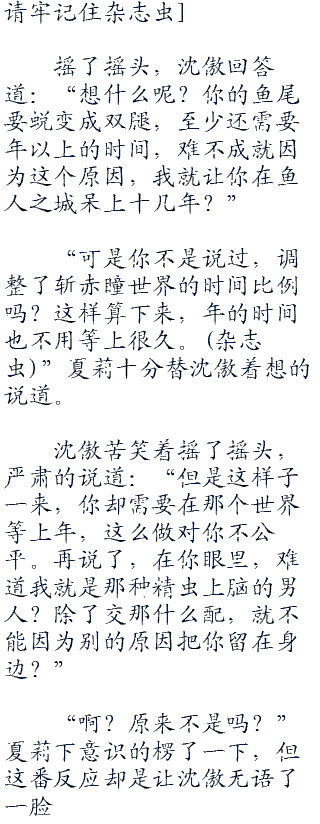 请牢记住杂志虫]
摇了摇头，沈傲回答
道：“想什么呢？你的鱼尾
要蜕变成双腿，至少还需要
年以上的时间，难不成就因
为这个原因，我就让你在鱼
人之城呆上十几年？”
“可是你不是说过，调
整了斩赤瞳世界的时间比例
吗？这样算下来，年的时间
也不用等上很久。(杂志
虫)”夏莉十分替沈傲着想的
说道。
沈傲苦笑着摇了摇头，
严肃的说道：“但是这样子
一来，你却需要在那个世界
等上年，这么做对你不公
平。再说了，在你眼里，难
道我就是那种精虫上脑的男
人？除了交那什么配，就不
能因为别的原因把你留在身
边？”
“啊？原来不是吗？”
夏莉下意识的楞了一下，但
这番反应却是让沈傲无语了
一脸